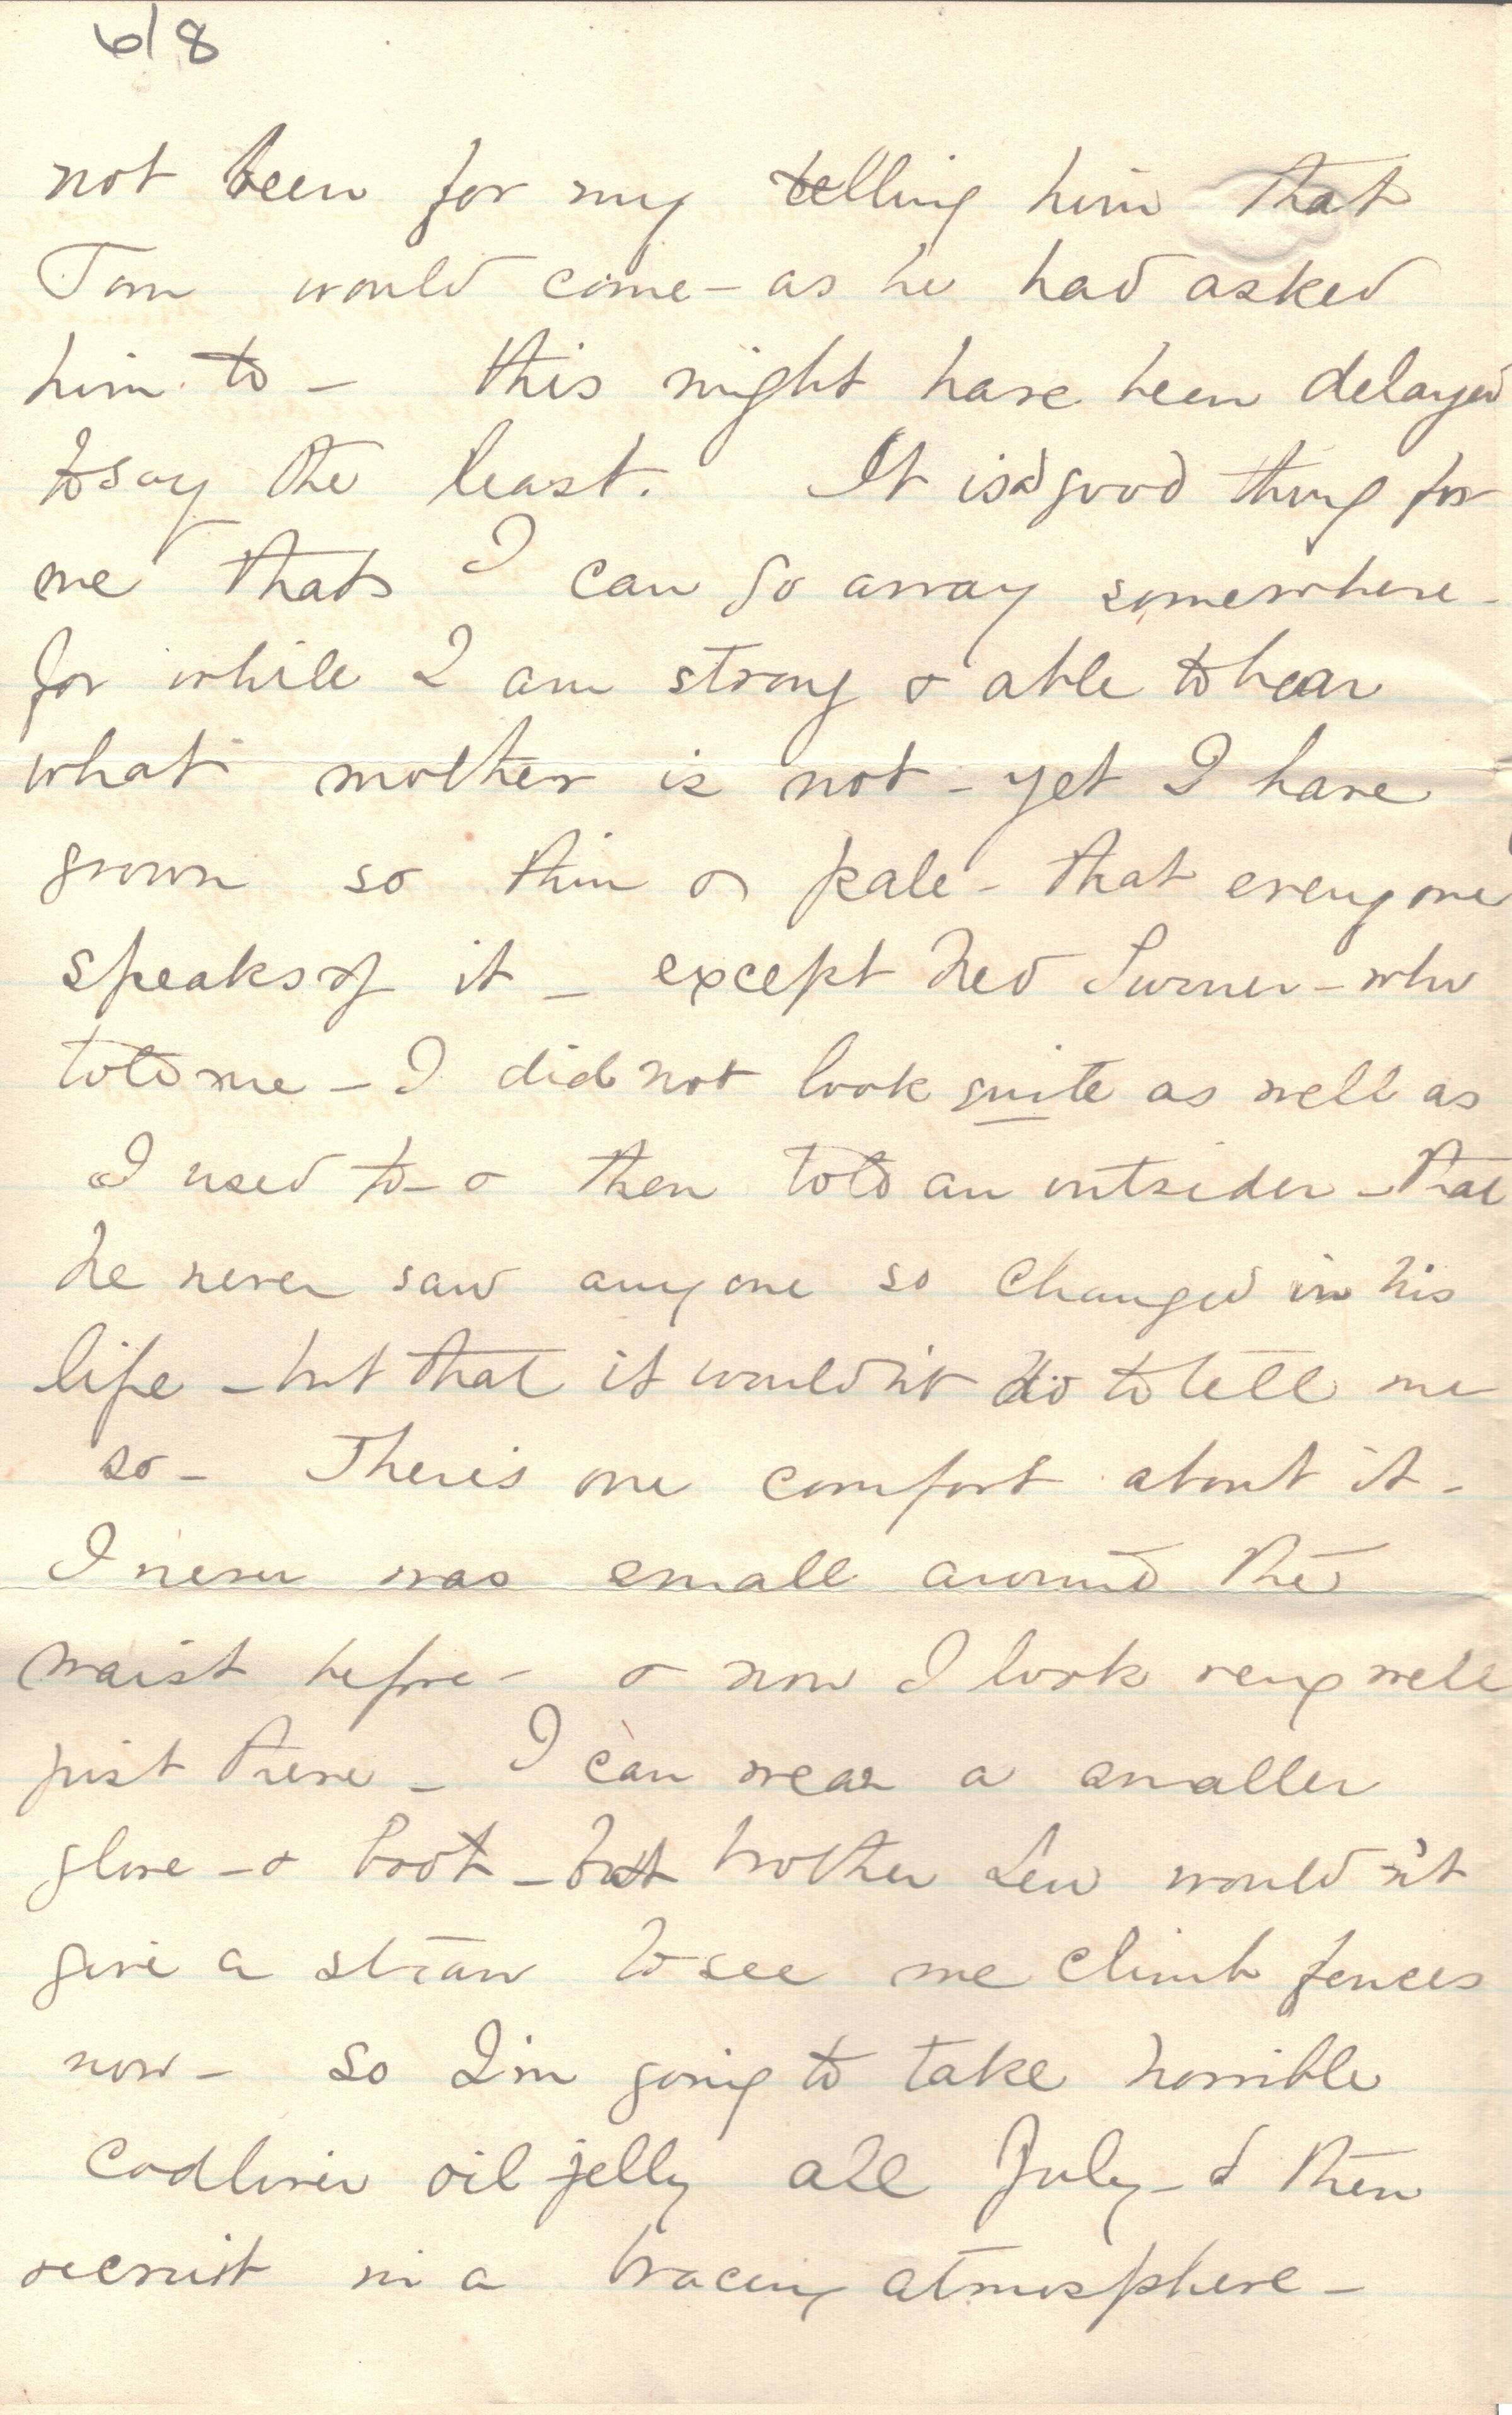 6/8
not been for my telling him that
Tom would come - as he had asked
him to - this might have been delayed
to say the least. It is a good thing for
me that I can go away somewhere -
for while I am strong & able to bear
what mother is not - yet I have
grown so thin & pale - that everyone
speaks of it - except Ned - who
told me - I did not look quite as well as
I used to - & then told an outsider - that
he never saw anyone so changed in his
life - but that it wouldn't do to tell me
so - There's one comfort about it -
I never was small around the
waist before - & now I look very well
just there - I can wear a smaller
glove - & boot - but brother Lew wouldn't
give a straw to see me climb fences
now - so I'm going to take horrible
codliver oil jelly all July - & then
recruit in a bracing atmosphere -